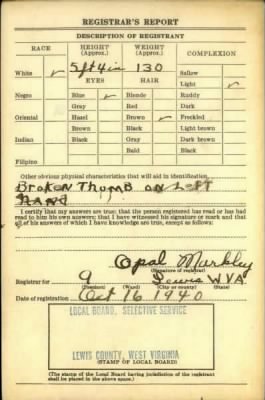 REGISTRAR'S REPORT
DESCRIPTION OF REGISTRANT
RACE HEIGHT (Approx.) WEIGHT (Approx.) COMPLEXION
5 ft 4 in 130 Sallow
White ✓ EYES HAIR Light ✓
Negro Blue ✓ Blonde Ruddy
Gray Red Dark
Oriental Hazel Brown ✓ Freckled
Brown Black Light brown
Indian Black Gray Dark brown
Bald Black
Filipino
Other obvious physical characteristics that will aid in identification
Broken Thumb on Left
Hand
I certify that my answers are true; that the person registered has read or has had
read to him his own answers; that I have witnessed his signature or mark and that
all of his answers of which I have knowledge are true, except as follows:
Opal Markley
(Signature of registrar)
Registrar for 9 Lewis W VA
(Precinct) (Ward) (City or county) (State)
Date of registration Oct 16 1940
LOCAL BOARD, SELECTIVE SERVICE
LEWIS COUNTY, WEST VIRGINIA
(STAMP OF LOCAL BOARD)
(The stamp of the Local Board having jurisdiction of the registrant
shall be placed in the above space.)